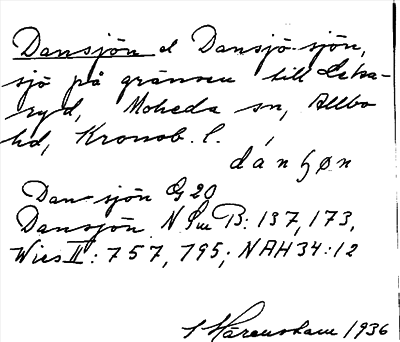 Dansjön el Dansjö-sjön,
sjö på gränsen till Lekaryd, Moheda sn, Allbo
hd, Kronob. l.
dánʃøn
Dansjön G 20
Dansjön N Sm B: 137, 173,
Wies II: 757, 795; NAH 34:12
1936